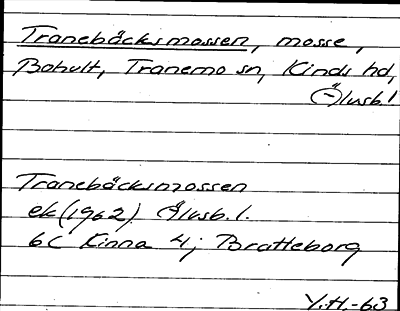 Tranebäcksmossen, mosse,
Bohult, Tranemo sn, Kinds hd,
Älvsb. l
Tranebäcksmossen
ek (1962) Älvsb. l.
6C Kinna 4; Bratteborg
Y.H.-63